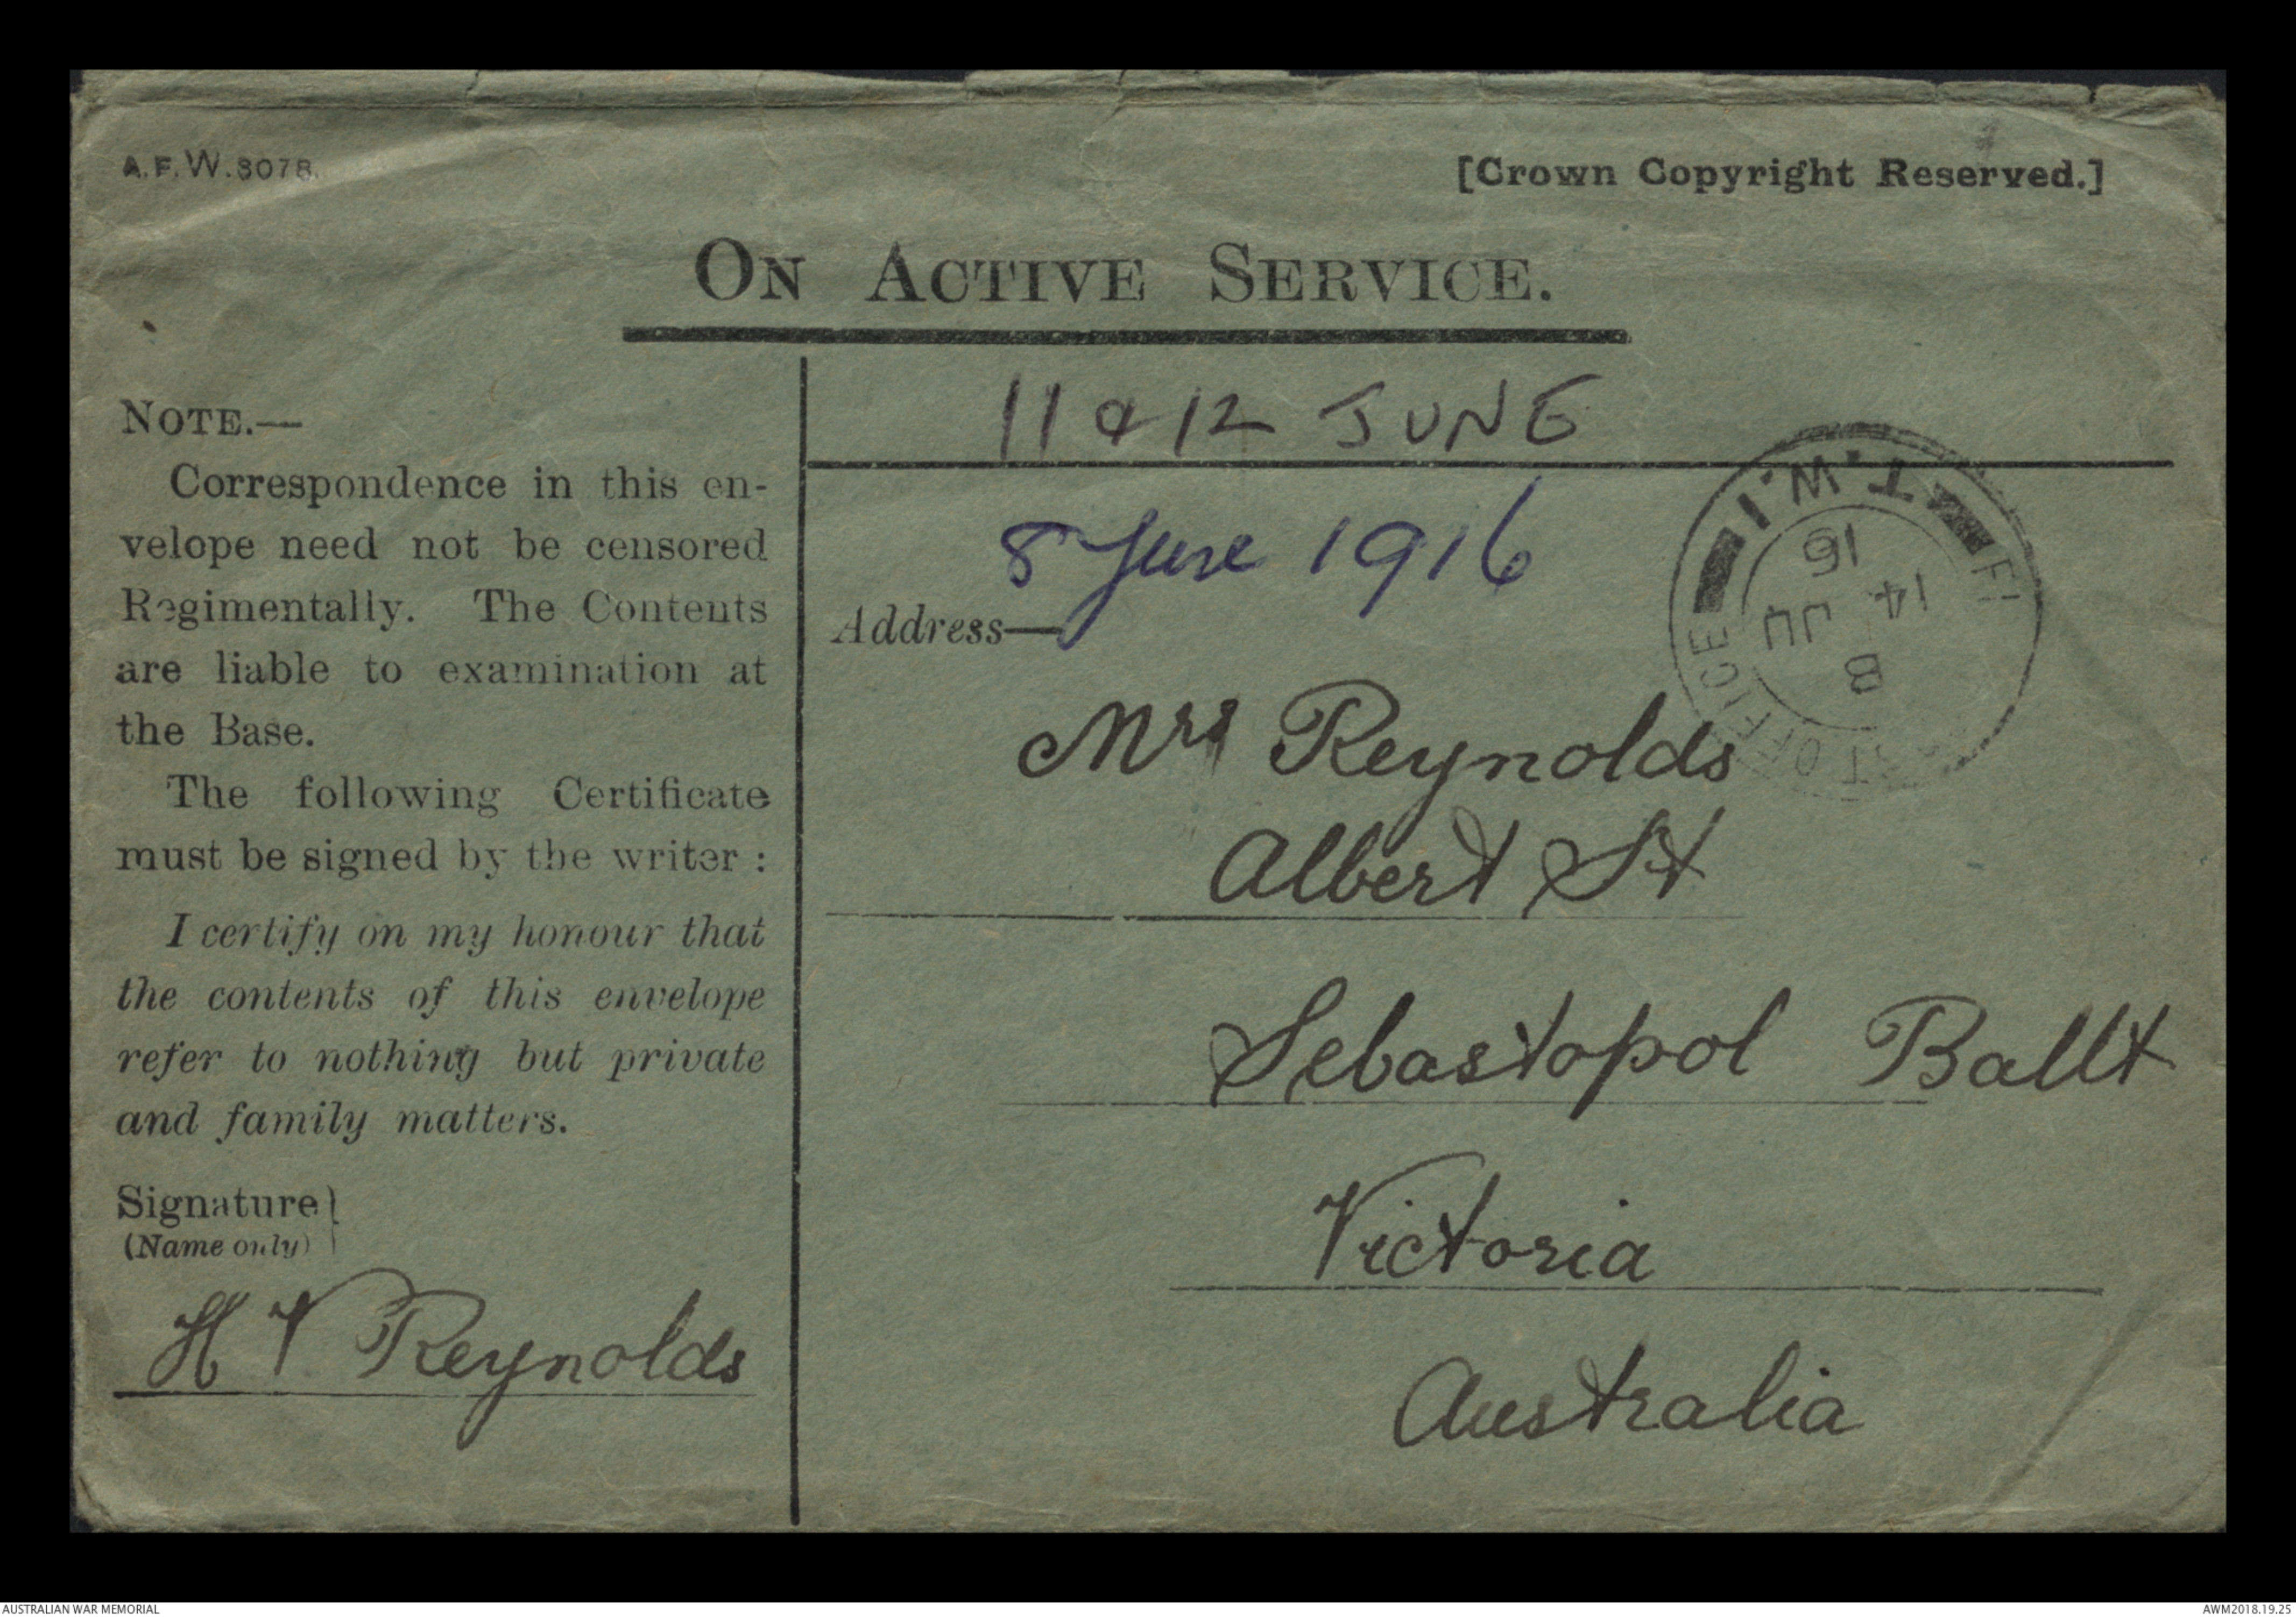 A.F.W.3078.
[Crown Copyright Reserved.]
ON ACTIVE SERVICE.
NOTE.—
Correspondence in this en-
velope need not be censored
Regimentally. The Contents
are liable to examination at
the Base.
The following Certificate
must be signed by the writer :
I certify on my honour that
the contents of this envelope
refer to nothing but private
and family matters.
Signature}
(Name only)
H V Reynolds
11 & 12 JUNE
8 June 1916
Address—
Mrs Reynolds
Albert St
Sebastopol Ballt
Victoria
Australia
T.W.1
OFFICE
B
14 JU
16
AUSTRALIAN WAR MEMORIAL
AWM2018.19.25